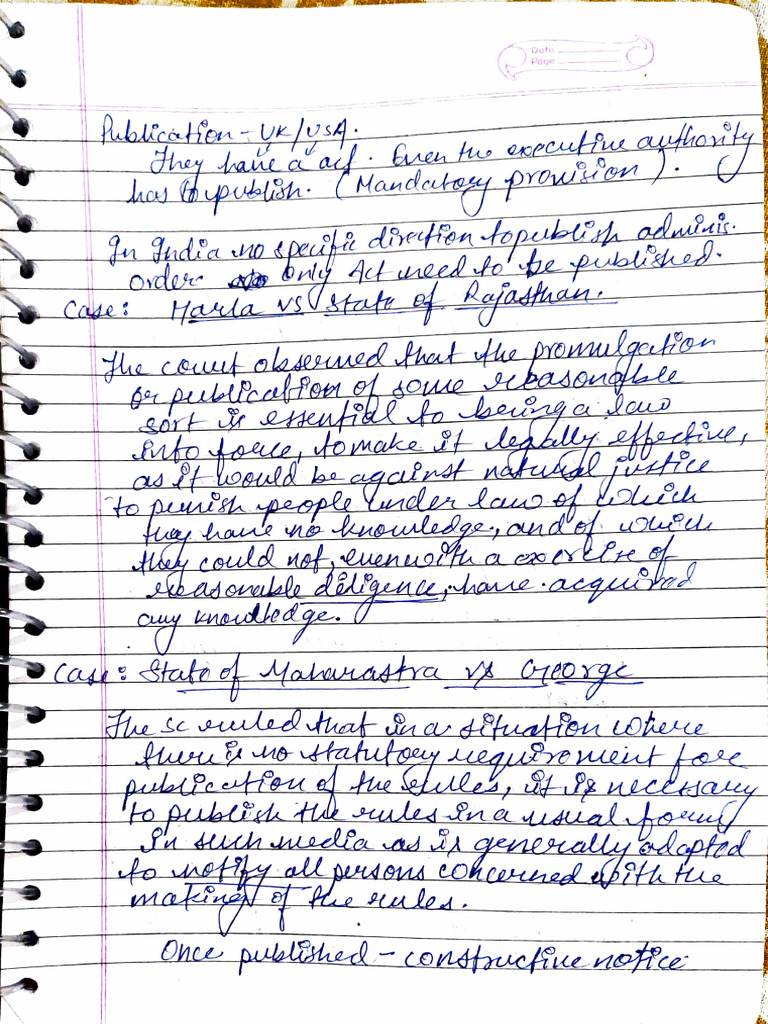 Date
Page
Publication - UK/USA.
They have a act. Even the executive authority
has to publish. (Mandatory provision).
In India no specific direction to publish adminis.
order only Act need to be published.
Case: Harla vs State of Rajasthan.
The court observed that the promulgation
or publication of some reasonable
sort is essential to being a law
into force, to make it legally effective,
as it would be against natural justice
to punish people under law of which
they have no knowledge, and of which
they could not, even with a exercise of
reasonable diligence, have acquired
any knowledge.
Case: State of Maharastra vs George
The SC ruled that in a situation where
there is no statutory requirement for
publication of the rules, it is necessary
to publish the rules in a usual form
in such media as is generally adopted
to notify all persons concerned with the
making of the rules.
Once published - constructive notice